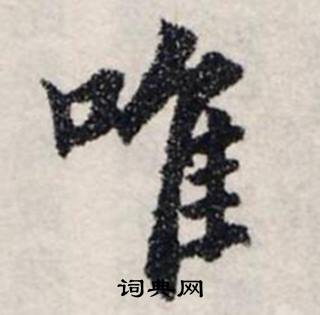 唯
词典网